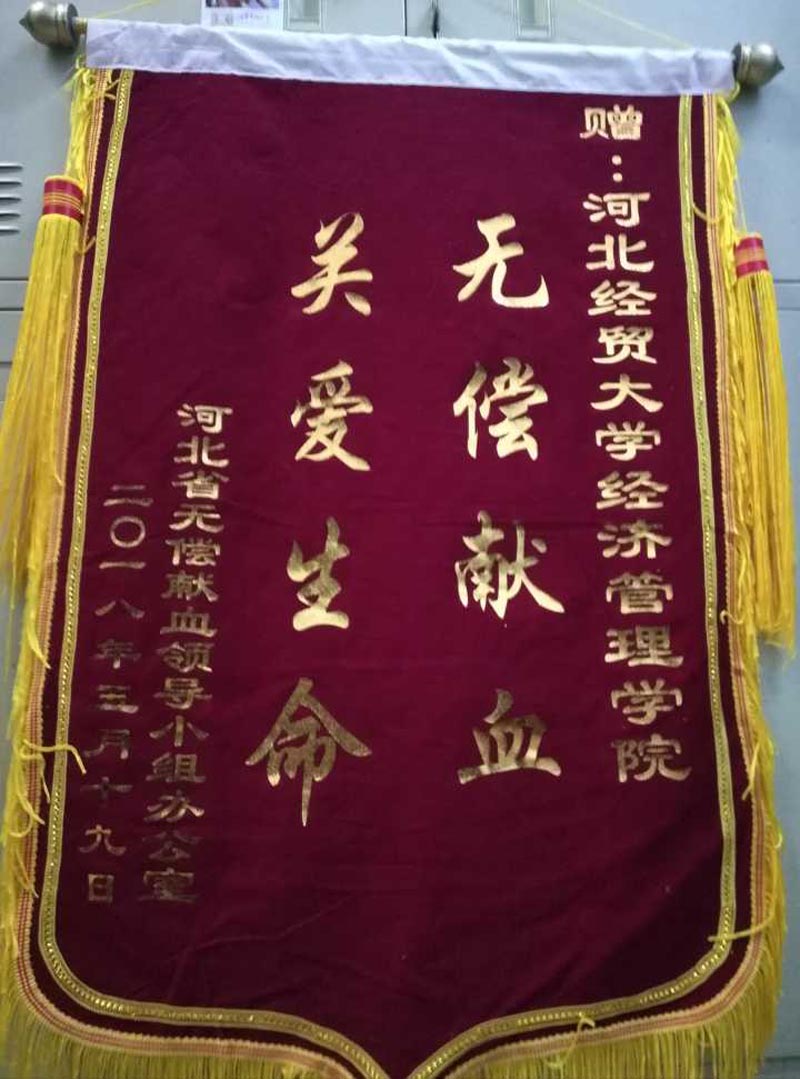 赠：河北经贸大学经济管理学院
无偿献血
关爱生命
河北省无偿献血领导小组办公室
二〇一八年五月十九日